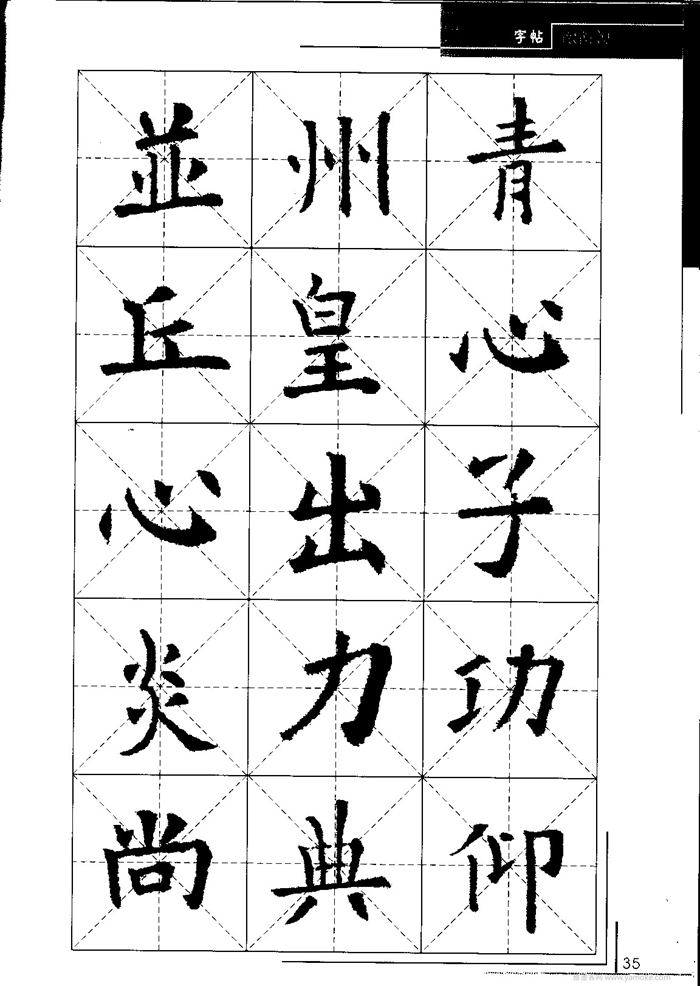 字帖
並州青
丘皇心
心出子
炎力功
尚典仰
35
www.yamoke.com